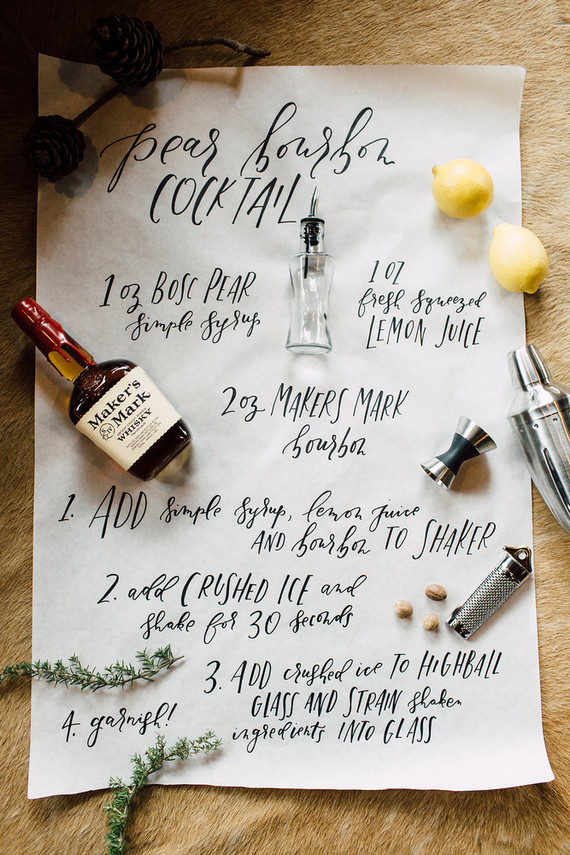 pear bourbon
COCKTAIL
1 oz BOSC PEAR
simple syrup
1 OZ
fresh squeezed
LEMON JUICE
Maker's
Mark
WHISKY
2 oz MAKERS MARK
bourbon
1. ADD simple syrup, lemon juice
AND bourbon TO SHAKER
2. add CRUSHED ICE and
shake for 30 seconds
3. ADD crushed ice TO HIGHBALL
GLASS AND STRAIN shaken
ingredients INTO GLASS
4. garnish!